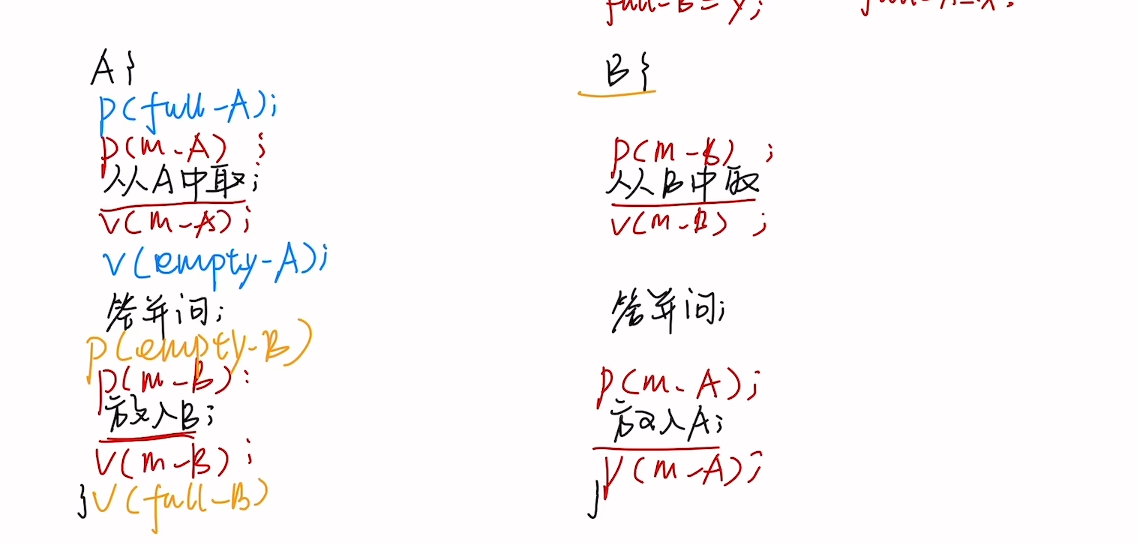 full-B = y;
A{
P(full-A);
P(m-A);
从A中取;
V(m-A);
V(empty-A);
答并问;
P(empty-B)
P(m-B);
放入B;
V(m-B);
}V(full-B)
B{
P(m-B);
从B中取
V(m-B);
答并问;
P(m-A);
放入A;
V(m-A);
}